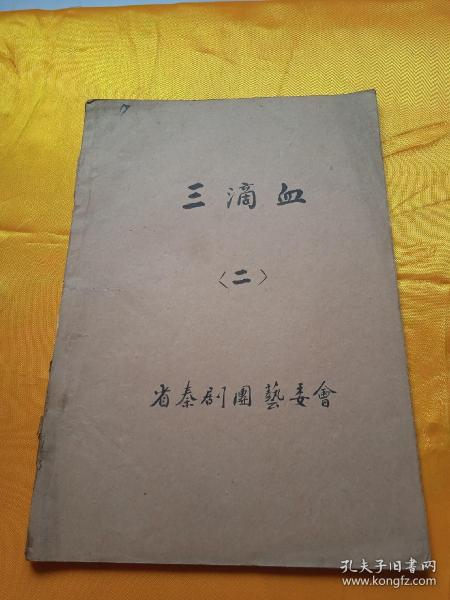 三滴血
〈二〉
省秦剧團藝委會
孔夫子旧书网
www.kongfz.com